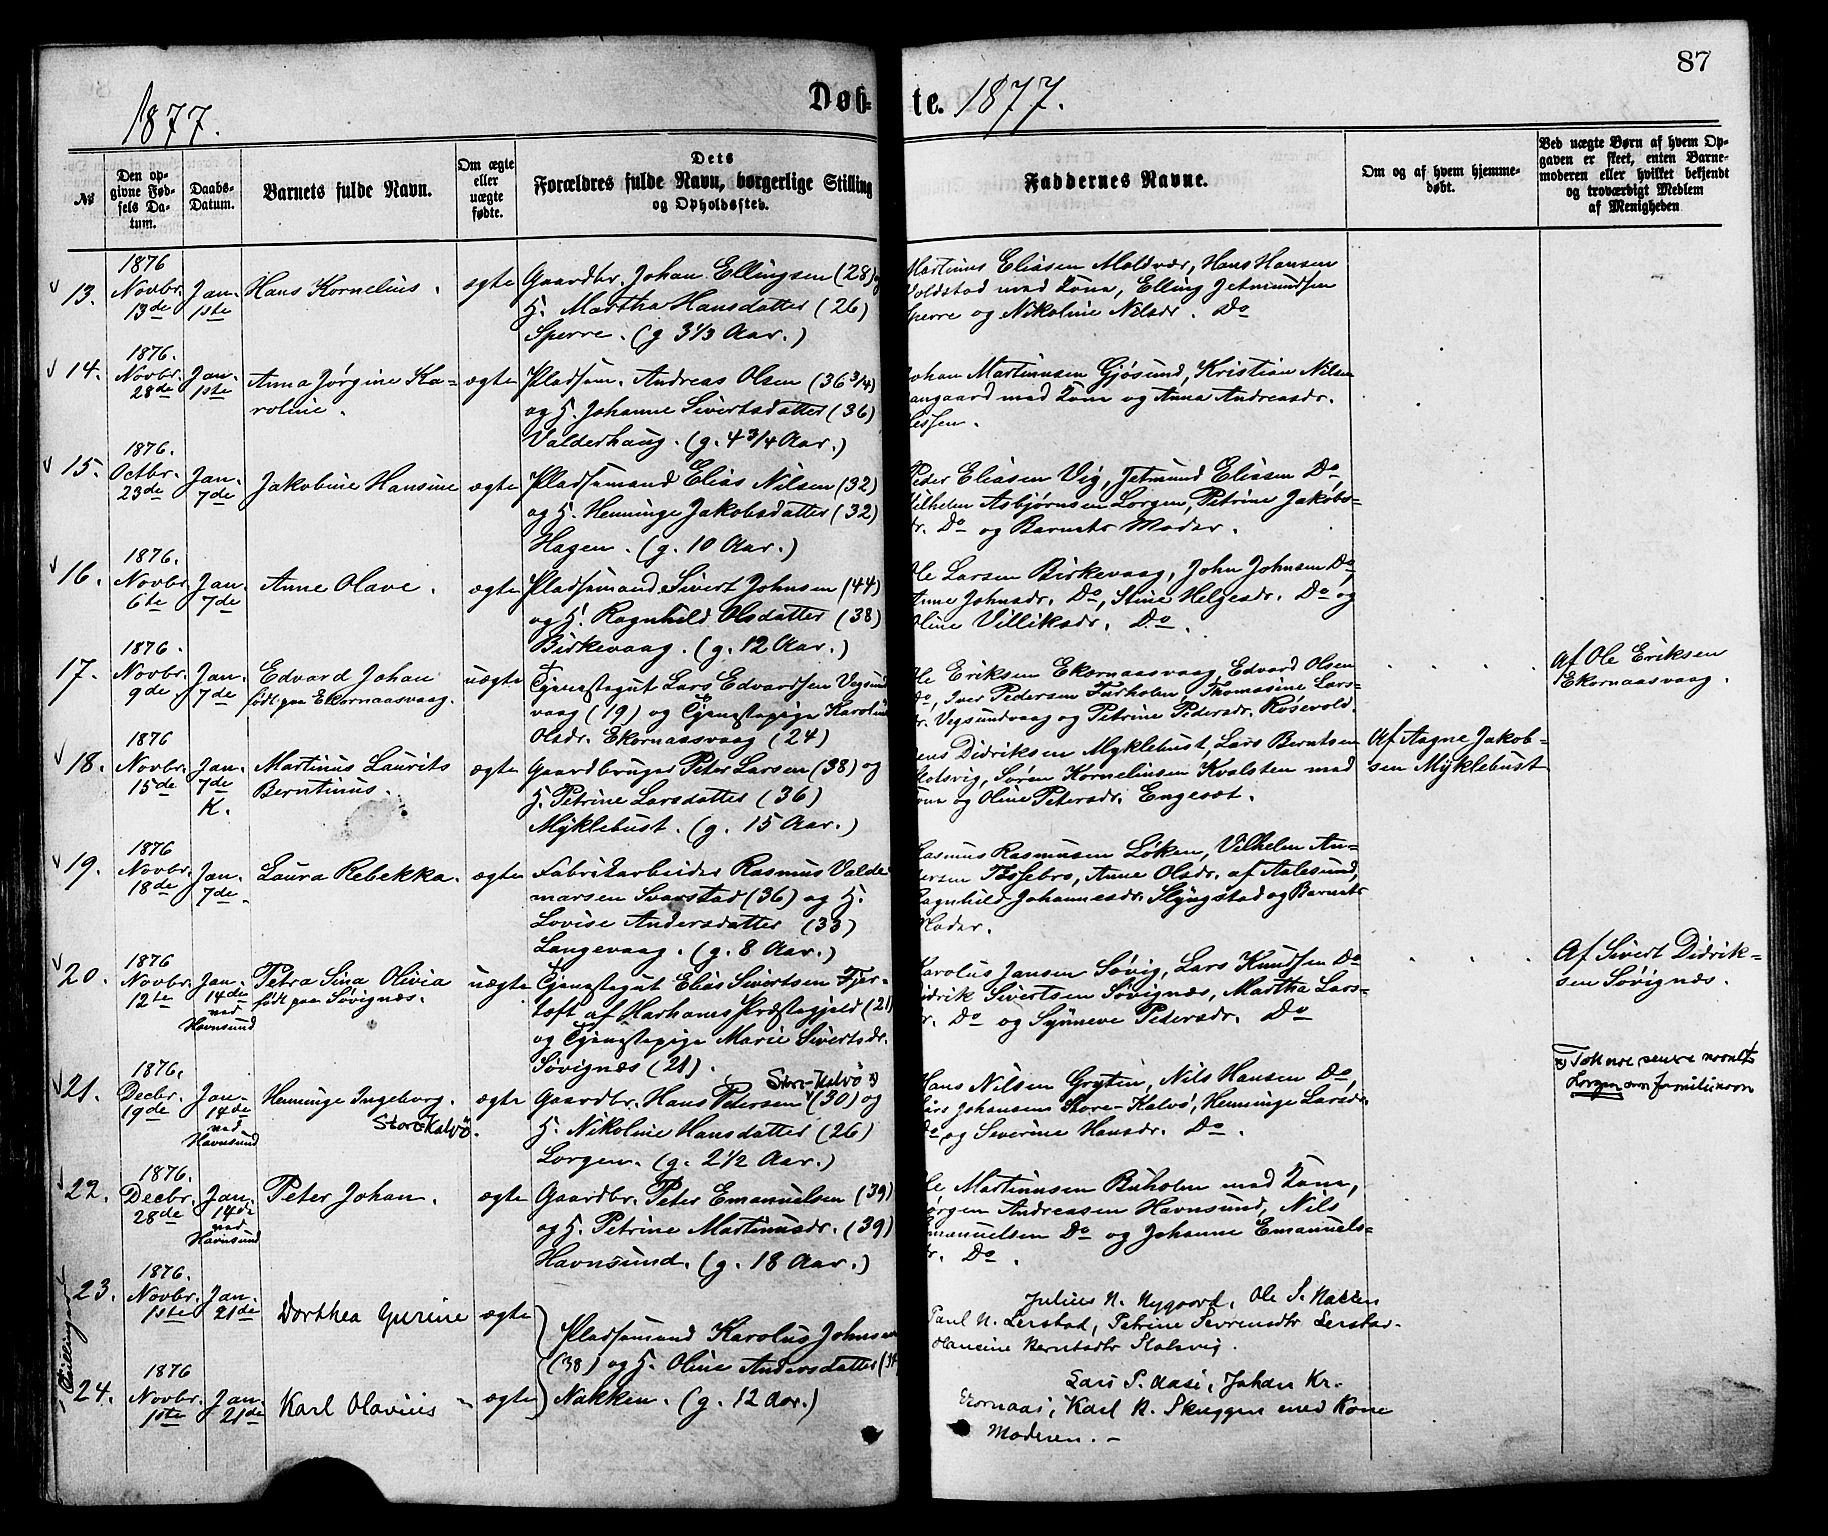 87
1877.
Døb-
te. 1877.
№
Den op-
givne Fød-
sels Da-
tum.
Daabs-
Datum.
Barnets fulde Navn.
Om ægte
eller
uægte
fødte.
Dets
Forældres fulde Navn, borgerlige Stilling
og Opholdssted.
Faddernes Navne.
Om og af hvem hjemme-
døbt.
Ved uægte Børn af hvem Op-
gaven er skeet, enten Barne-
moderen eller hvilket bekjendt
og troværdigt Medlem
af Menigheden
13.
1876
Novbr.
13de
Jan.
1ste
Hans Kornelius.
ægte
Gaardbr. Johan Ellingsen (28) og
H. Martha Hansdatter (26)
Sperre. (g 3 1/3 Aar.)
Martinus Eliasen Moldvær, Hans Hansen
Voldstad med Kone, Elling Jetmundsen
Sperre og Nikoline Nilsdr. Do
14.
1876.
Novbr.
28de
Jan.
1ste
Anna Jørgine Ka-
roline.
ægte
Pladsm. Andreas Olsen (36 3/4)
og H. Johanne Sivertsdatter (36)
Valderhaug. (g. 4 3/4 Aar.)
Johan Martinusen Gjøsund, Kristian Nilsen
angaard med Kone og Anna Andreasdr.
essen.
15.
1876.
Octbr.
23de
Jan.
7de
Jakobine Hansine
ægte
Pladsmand Elias Nilsen (32)
og H. Henninge Jakobsdatter (32)
Hagen. (g. 10 Aar.)
Peder Eliasen Vig, Jetmund Eliasen Do,
Vilhelm Asbjørnsen Lorgen, Petrine Jakobs-
dr. Do og Barnets Moder.
16.
1876.
Novbr.
6te
Jan.
7de
Anne Olave.
ægte
Pladsmand Sivert Johnsen (44)
og H. Ragnhild Olsdatter (38)
Birkevaag. (g. 12 Aar.)
Ole Larsen Birkevaag, John Johnsen Do,
Anne Johnsdr. Do, Stine Helgesdr. Do og
Oline Villiksdr. Do.
17.
1876.
Novbr.
9de
Jan.
7de
Edvard Johan
født paa Ekornaasvaag.
uægte
Tjenestegut Lars Edvardsen Vegsund
vaag (19) og Tjenestepige Karoline
Olsdr. Ekornaasvaag (24)
Ole Eriksen Ekornaasvaag, Edvard Olsen
Do, Iver Pedersen Furholm, Thomasine Lars-
dr. Vegsundvaag og Petrine Pedersdr. Rosevold.
Af Ole Eriksen
Ekornaasvaag.
18.
1876
Novbr.
15de
Jan.
7de
K.
Martinus Laurits
Berntinus.
ægte
Gaardbruger Peter Larsen (38) og
H. Petrine Larsdatter (36)
Myklebust. (g. 15 Aar.)
Jens Didriksen Myklebust, Lars Berntsen
Slotsvig, Søren Kornelinsen Kvalsten med
Kone og Oline Petersdr. Engeset.
Af Aagne Jakob-
sen Myklebust
19.
1876
Novbr.
18de
Jan.
7de
Laura Rebekka.
ægte
Fabrikarbeider Rasmus Valde
marsen Svorstad (36) og H.
Lovise Andersdatter (33)
Langevaag. (g. 8 Aar.)
Rasmus Rasmusen Løken, Vilhelm An-
dersen Tossebro, Anne Olsdr. af Aalesund,
Ragnhild Johannesdr. Slyngstad og Barnets
Moder.
20.
1876
Novbr.
12te
Jan.
14de
ved
Havnsund
Petra Sina Olivia
født paa Søvignæs.
uægte
Tjenestegut Elias Sivertsen Fjør-
toft af Harhams Præstegjeld (21)
og Tjenestepige Marie Sivertsdr.
Søvignæs (21).
Karolus Jansen Søvig, Lars Knudsen Do
Didrik Sivertsen Søvignæs, Martha Lars-
dr. Do og Synneve Pedersdr. Do
Af Sivert Didrik-
sen Søvignæs.
21.
1876.
Decbr.
19de
Jan.
14de
ved
Havnsund
Henninge Ingeborg.
Store Kalvö.
ægte
Store-Kalvö x)
Gaardbr. Hans Petersen (30) og
H. Nikoline Hansdatter (26)
Lorgen. (g. 2 1/2 Aar.)
Hans Nilsen Grytin, Nils Hansen Do,
Lars Johansen Store-Kalvö, Henninge Larsdr.
Do og Severine Hansdr. Do.
x) Tok ... senere navnet
Lorgen som familienavn
22.
1876.
Decbr.
28de
Jan.
14de
ved
Havnsund
Peter Johan.
ægte
Gaardbr. Peter Emanuelsen (39)
og H. Petrine Martinusdr. (39)
Havnsund. (g. 18 Aar.)
Ole Martinusen Buholm med Kone,
Jørgen Andreasen Havnsund, Nils
Emanuelsen Do og Johanne Emanuels-
dr. Do.
Tvillinger
23.
1876.
Novbr.
1ste
Jan.
21de
Dorthea Gurine
ægte
Pladsmand Karolus Johnsen
(38) og H. Oline Andersdatter
Nakken. (g. 12 Aar.)
Julius N. Nygaard, Ole S. Nakken
Paul N. Lerstad, Petrine Sevrensdtr Lerstad.
Hansine Berntsdtr Slotsvig.
24.
1876
Novbr.
1ste
Jan.
21de
Karl Olavius
ægte
Lars P. Aase, Johan Kr.
Ekornaas, Karl N. Skuggen med Kone
Moderen. –